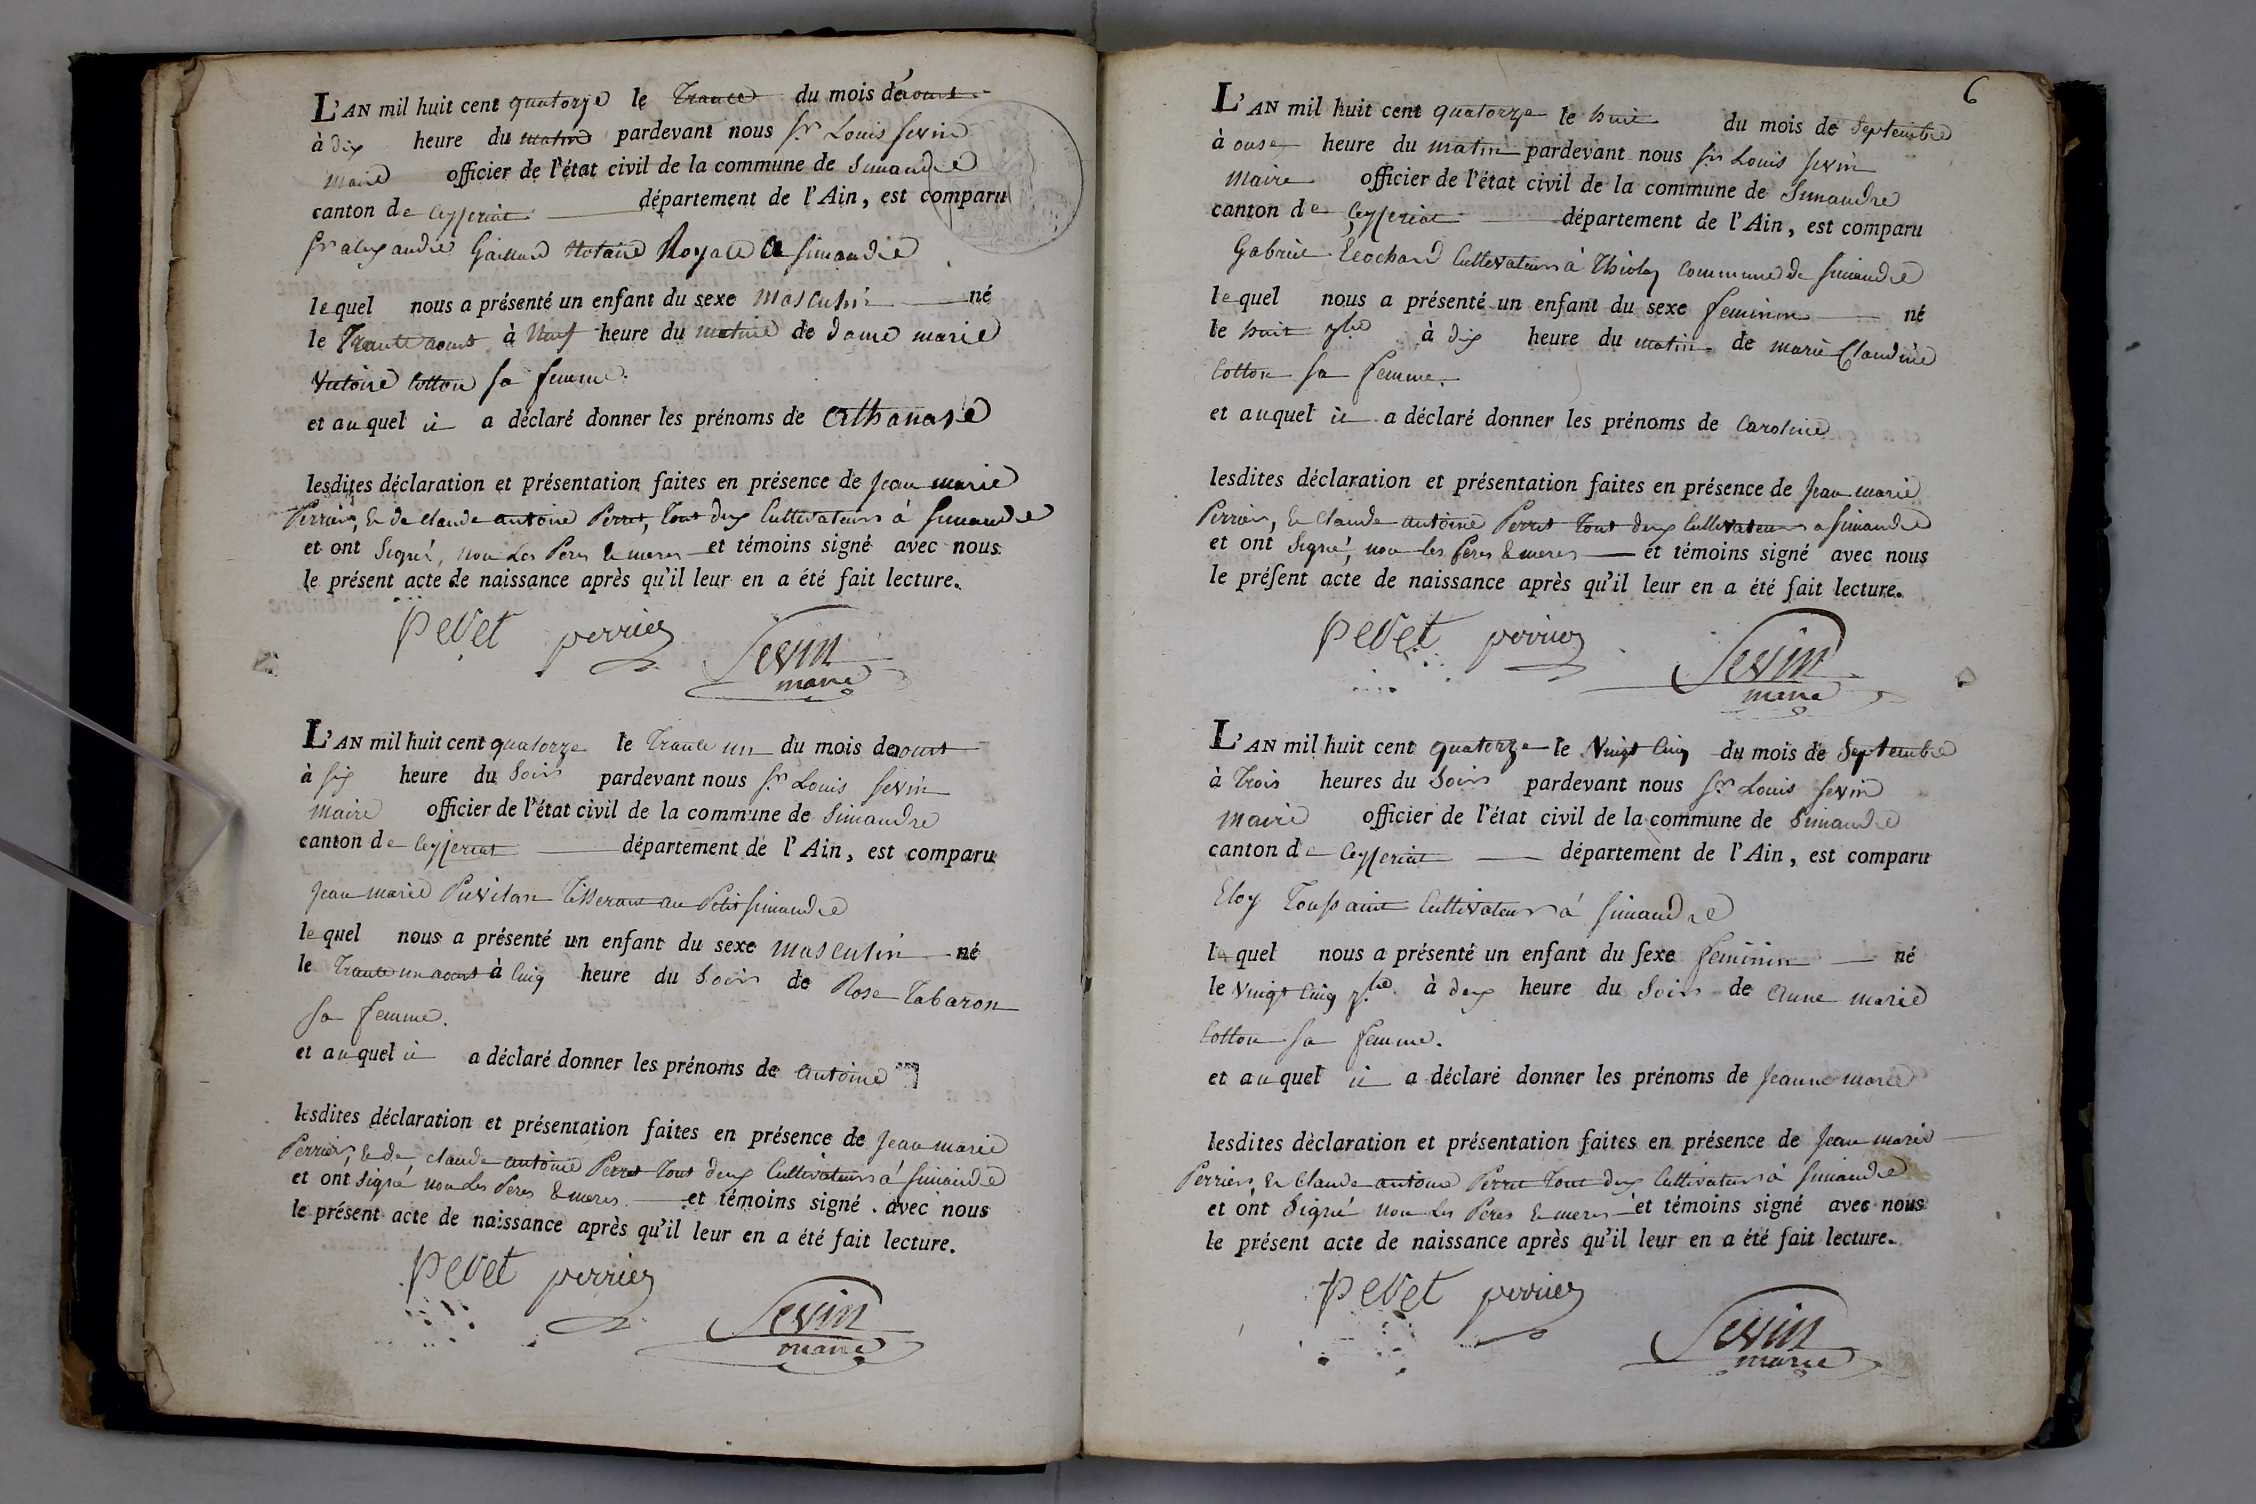 L'AN mil huit cent quatorze le Trante du mois d'aoust
à dix heure du matin pardevant nous Sr Louis Sevin
maire officier de l'état civil de la commune de Simandre
canton de Ceyseriat département de l'Ain, est comparu
Sr alexandre Gaillard Notaire Royale a Simandre
lequel nous a présenté un enfant du sexe masculin né
le Trante aoust à Neuf heure du matin de dame marie
Victoire Cotton sa femme.
et auquel il a déclaré donner les prénoms de Athanase
lesdites déclaration et présentation faites en présence de Jean marie
Perrier, & de claude antoine Perret, tout deux Cultivateurs à Simandre
et ont Signé, non Les Peres & meres et témoins signé avec nous
le présent acte de naissance après qu'il leur en a été fait lecture.
Peret perrier Sevin
maire
L'AN mil huit cent quatorze le Trante un du mois de aoust
à six heure du Soir pardevant nous Sr Louis Sevin
maire officier de l'état civil de la commune de Simandre
canton de Ceyseriat département de l'Ain, est comparu
Jean marie Puvilan Tisserant au Petit Simandre
lequel nous a présenté un enfant du sexe masculin né
le Trante un aoust à Cinq heure du Soir de Rose Tabaron
sa femme.
et auquel il a déclaré donner les prénoms de antoine
lesdites déclaration et présentation faites en présence de Jean marie
Perrier, & de claude antoine Perret tout deux Cultivateurs à Simandre
et ont Signé non Les Peres & meres et témoins signé avec nous
le présent acte de naissance après qu'il leur en a été fait lecture.
Peret perrier Sevin
maire
6
L'AN mil huit cent quatorze le huit du mois de Septembre
à onse heure du matin pardevant nous Sr Louis Sevin
maire officier de l'état civil de la commune de Simandre
canton de Ceyseriat département de l'Ain, est comparu
Gabriel Cultivateur à Thioley Commune de Simandre
lequel nous a présenté un enfant du sexe feminin né
le huit 7bre à dix heure du matin de marie Claudine
Cotton sa femme.
et auquel il a déclaré donner les prénoms de Caroline
lesdites déclaration et présentation faites en présence de Jean marie
Perrier, & Claude antoine Perret tout deux Cultivateurs a Simandre
et ont Signé, non les Peres & meres et témoins signé avec nous
le préſent acte de naissance après qu'il leur en a été fait lecture.
Peret perrier Sevin
maire
L'AN mil huit cent quatorze le Vingt Cinq du mois de Septembre
à Trois heures du Soir pardevant nous Sr Louis Sevin
maire officier de l'état civil de la commune de Simandre
canton de Ceyseriat département de l'Ain, est comparu
Eloy Toussaint Cultivateur à Simandre
lequel nous a présenté un enfant du ſexe feminin né
le Vingt Cinq 7bre à deux heure du Soir de Anne marie
Cotton sa femme.
et auquel il a déclaré donner les prénoms de Jeanne marie
lesdites déclaration et présentation faites en présence de Jean marie
Perrier, & Claude antoine Perret tout deux Cultivateurs à Simandre
et ont Signé non Les Peres & meres et témoins signé avec nous
le présent acte de naissance après qu'il leur en a été fait lecture.
Peret perrier Sevin
maire